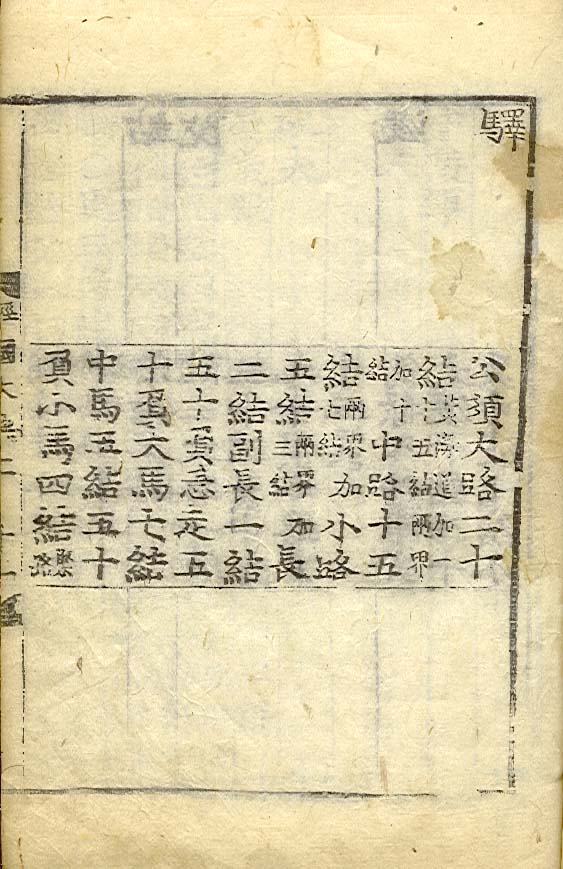 驛
公須大路二十
結黃海道加一十五結兩界
加十結中路十五
結兩界加七結小路
五結兩界加三結長
二結副長一結
五十負急走五
十負大馬七結
中馬五結五十
負小馬四結緊路
經國大典二